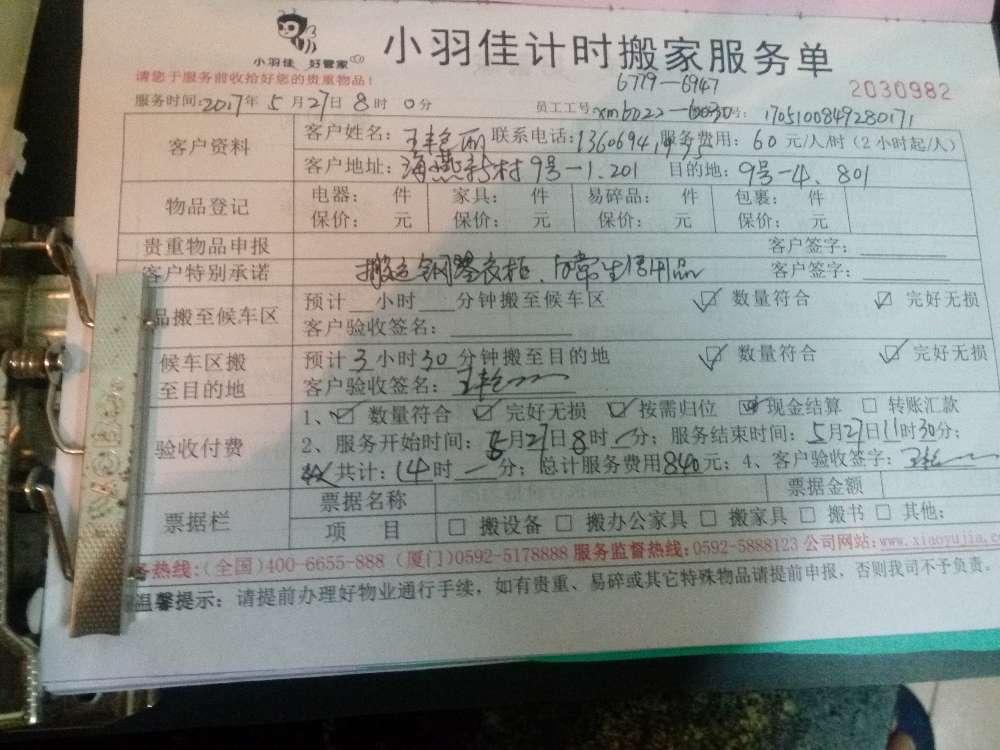 小羽佳 好管家
小羽佳计时搬家服务单
6779-6947
请您于服务前收拾好您的贵重物品!
2030982
服务时间:2017年 5月27日 8时 0分 员工工号: xm6022 号: 1705100849280171
客户资料
客户姓名: 联系电话: 服务费用: 60 元/人/时(2小时起/人)
客户地址: 海燕新村9号-1.201 目的地: 9号-4、801
物品登记
电器: 件 家具: 件 易碎品: 件 包裹: 件
保价: 元 保价: 元 保价: 元 保价: 元
贵重物品申报 客户签字:
客户特别承诺 搬运钢琴衣柜、日常生活用品 客户签字:
品搬至候车区
预计 小时 分钟搬至候车区 ☑ 数量符合 ☑ 完好无损
客户验收签名:
候车区搬至目的地
预计 3 小时 30 分钟搬至目的地 ☑ 数量符合 ☑ 完好无损
客户验收签名:
验收付费
1、☑ 数量符合 ☑ 完好无损 ☑ 按需归位 ☑ 现金结算 □ 转账汇款
2、服务开始时间: 5月27日8时 分; 服务结束时间: 5月27日11时30分;
共计: 14时 分; 总计服务费用840元; 4、客户验收签字:
票据栏
票据名称 票据金额
项 目 □ 搬设备 □ 搬办公家具 □ 搬家具 □ 搬书 □ 其他:
务热线:(全国)400-6655-888 (厦门)0592-5178888 服务监督热线:0592-5888123 公司网站:www.xiaoyujia.co
温馨提示: 请提前办理好物业通行手续, 如有贵重、易碎或其它特殊物品请提前申报, 否则我司不予负责。